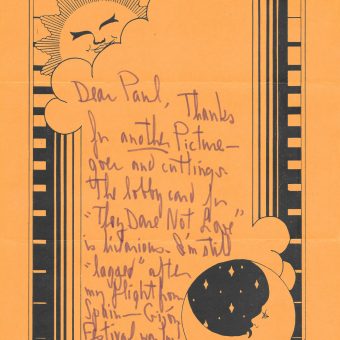 Dear Paul, Thanks
for another Picture-
goer and cuttings.
The lobby card for
"They Dare Not Love"
is hilarious. I'm still
"lagged" after
my flight from
Spain — Gijón
Festival